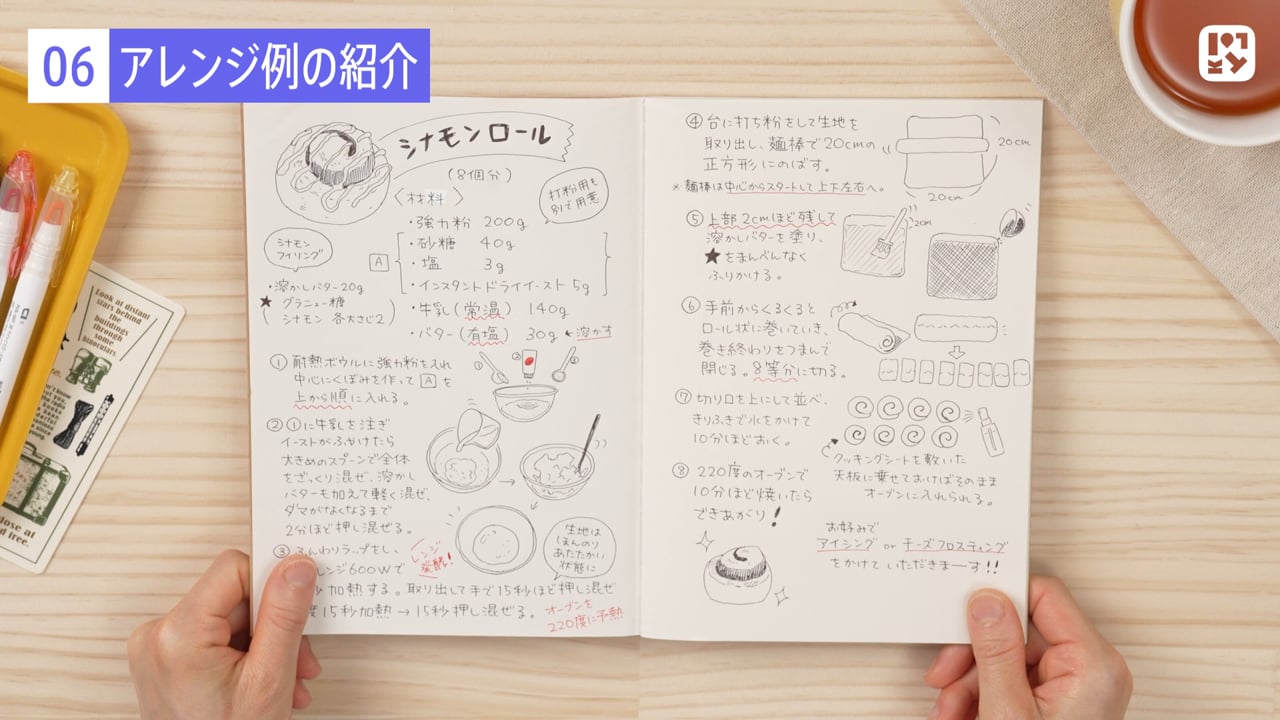 06 アレンジ例の紹介
シナモンロール
(8個分)
打粉用も
別で用意
〈材料〉
・強力粉 200g
・砂糖 40g
・塩 3g
・インスタントドライイースト 5g
A
・牛乳(常温) 140g
・バター(有塩) 30g ←溶かす
シナモン
フィリング
・溶かしバター20g
★ グラニュー糖
シナモン 各大さじ2
① 耐熱ボウルに強力粉を入れ
中心にくぼみを作って A を
上から順に入れる。
② ①に牛乳を注ぎ
イーストがふやけたら
大きめのスプーンで全体
をざっくり混ぜ、溶かし
バターを加えて軽く混ぜ、
ダマがなくなるまで
2分ほど押し混ぜる。
③ ふんわりラップをし、
レンジ600Wで
秒加熱する。取り出して手で15秒ほど押し混ぜ
度15秒加熱→15秒押し混ぜる。
レンジ
発酵!
生地は
ほんのり
あたたかい
状態に
オーブンを
220度に予熱
④ 台に打ち粉をして生地を
取り出し、麺棒で20cmの
正方形にのばす。
※麺棒は中心からスタートして上下左右へ。
20cm
20cm
⑤ 上部2cmほど残して
溶かしバターを塗り、
★をまんべんなく
ふりかける。
2cm
⑥ 手前からくるくると
ロール状に巻いていき、
巻き終わりをつまんで
閉じる。8等分に切る。
⑦ 切り口を上にして並べ、
きりふきで水をかけて
10分ほどおく。
クッキングシートを敷いた
天板に乗せておけばそのまま
オーブンに入れられる。
⑧ 220度のオーブンで
10分ほど焼いたら
できあがり!
お好みで
アイシング or チーズフロスティング
をかけていただきまーす!!
Look at distant
stars behind
the
buildings
through
some
binoculars.